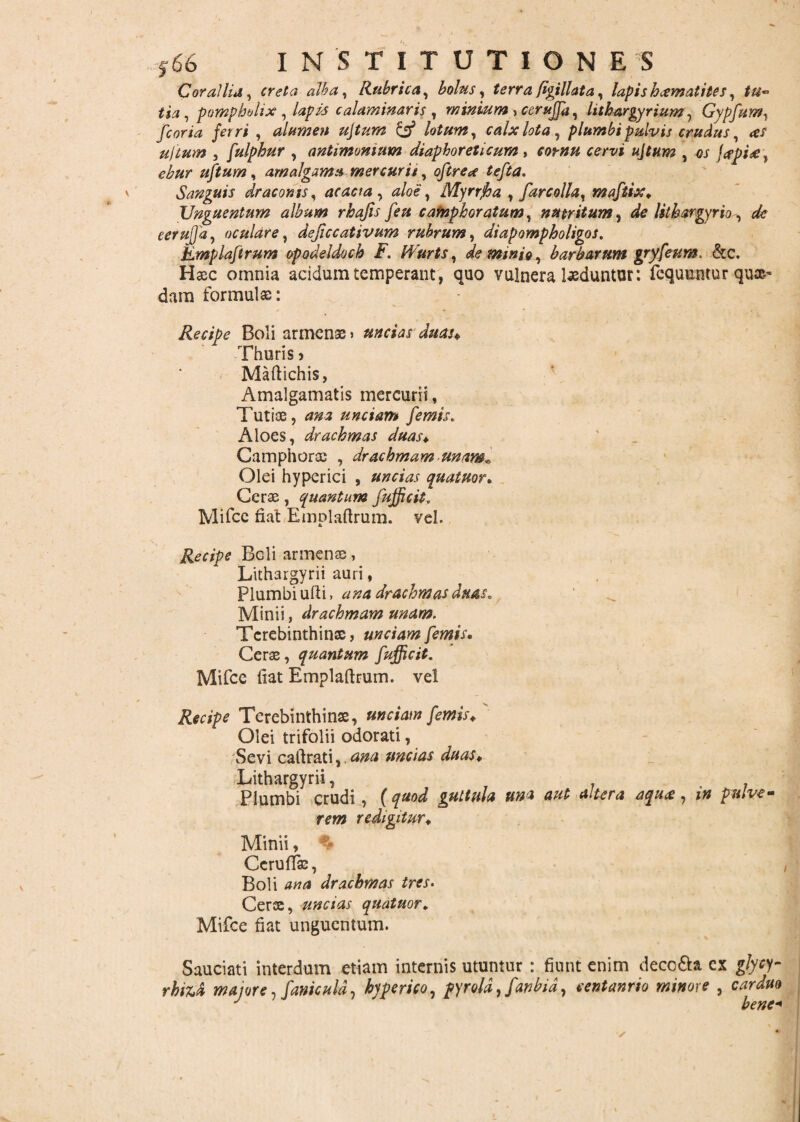 566 INSTITUTIONES
Corallia, creta alba, Rubrica, bolus, terra ſigillata, lapis hæmatites, tu-
tia, pompholix, lapis calaminaris, minium, ceruſſa, lithargyrium, Gypſum,
ſcoria ferri, alumen uſtum & lotum, calx lota, plumbi pulvis crudus, æs
uſtum, ſulphur, antimonium diaphoreticum, cornu cervi uſtum, os ſæpiæ,
ebur uſtum, amalgama mercurii, oſtreæ teſta.
Sanguis draconis, acacia, aloë, Myrrha, ſarcolla, maſtix.
Unguentum album rhaſis ſeu camphoratum, nutritum, de lithargyrio, de
ceruſſa, oculare, deſiccativum rubrum, diapompholigos.
Emplaſtrum opodeldoch F. Wurts, de minio, barbarum gryſeum. &c.
Hæc omnia acidum temperant, quo vulnera læduntur: ſequuntur quæ-
dam formulæ:
Recipe Boli armenæ, uncias duas.
Thuris,
Maſtichis,
Amalgamatis mercurii,
Tutiæ, ana unciam ſemis.
Aloes, drachmas duas.
Camphoræ, drachmam unam.
Olei hyperici, uncias quatuor.
Ceræ, quantum ſufficit.
Miſce fiat Emplaſtrum. vel.
Recipe Boli armenæ,
Lithargyrii auri,
Plumbi uſti, ana drachmas duas.
Minii, drachmam unam.
Terebinthinæ, unciam ſemis.
Ceræ, quantum ſufficit.
Miſce fiat Emplaſtrum. vel
Recipe Terebinthinæ, unciam ſemis.
Olei trifolii odorati,
Sevi caſtrati, ana uncias duas.
Lithargyrii,
Plumbi crudi, (quod guttula una aut altera aquæ, in pulve-
rem redigitur.
Minii,
Ceruſſæ,
Boli ana drachmas tres.
Ceræ, uncias quatuor.
Miſce fiat unguentum.
Sauciati interdum etiam internis utuntur: fiunt enim decocta ex glycy-
rhizâ majore, ſaniculâ, hyperico, pyrolâ, ſanbiâ, centanrio minore, carduo
bene-